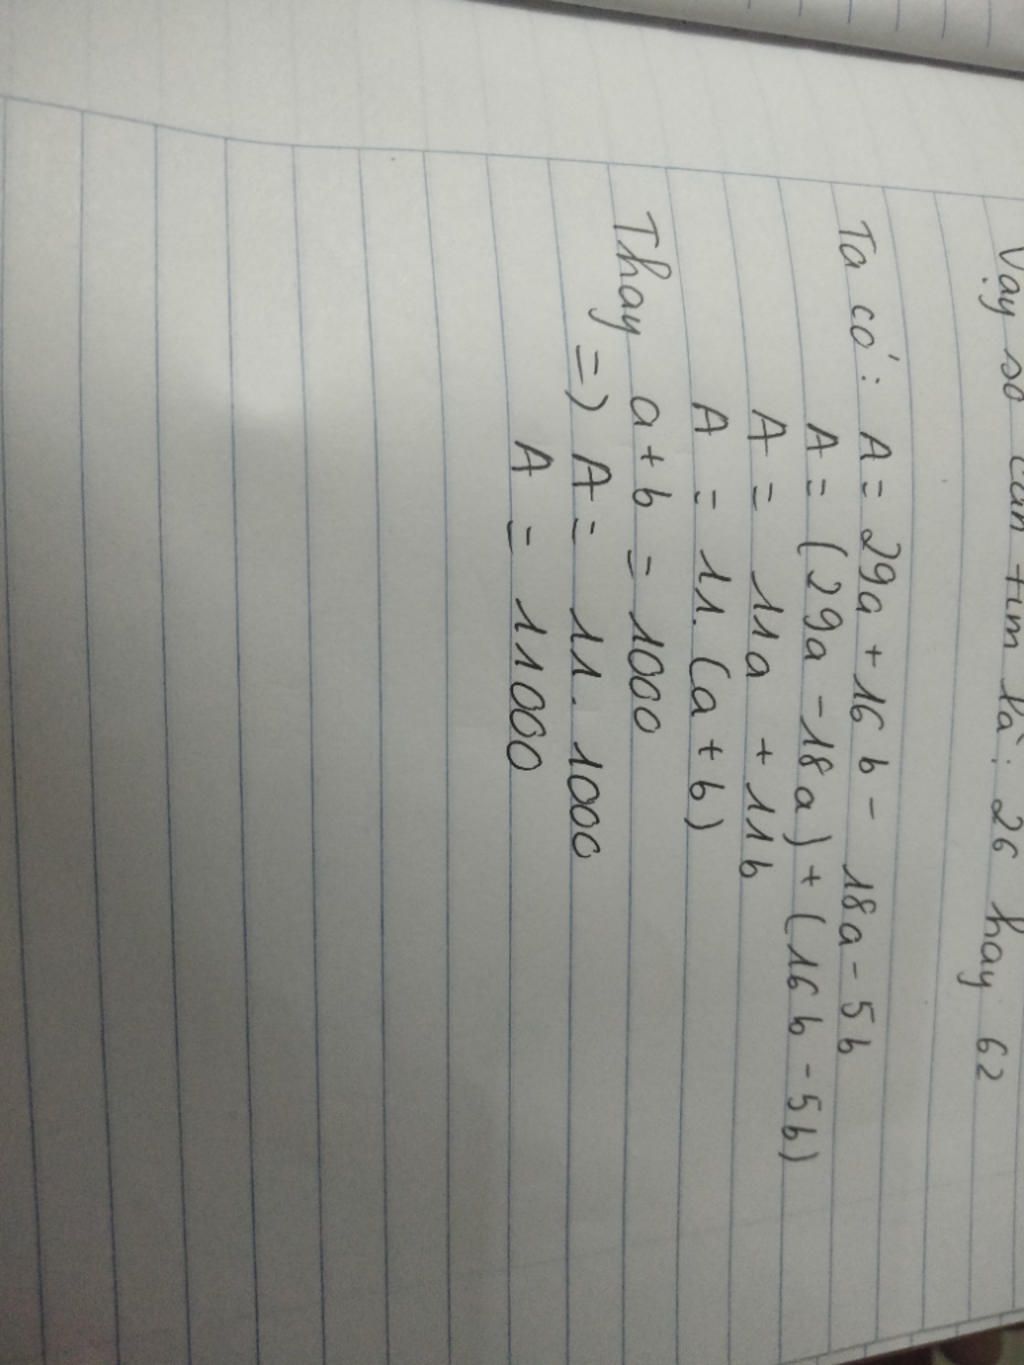 Vậy số cần tìm là: 26 hay 62
Ta có: A = 29a + 16b - 18a - 5b
A = (29a - 18a) + (16b - 5b)
A = 11a + 11b
A = 11. (a + b)
Thay a + b = 1000
=) A = 11. 1000
A = 11000